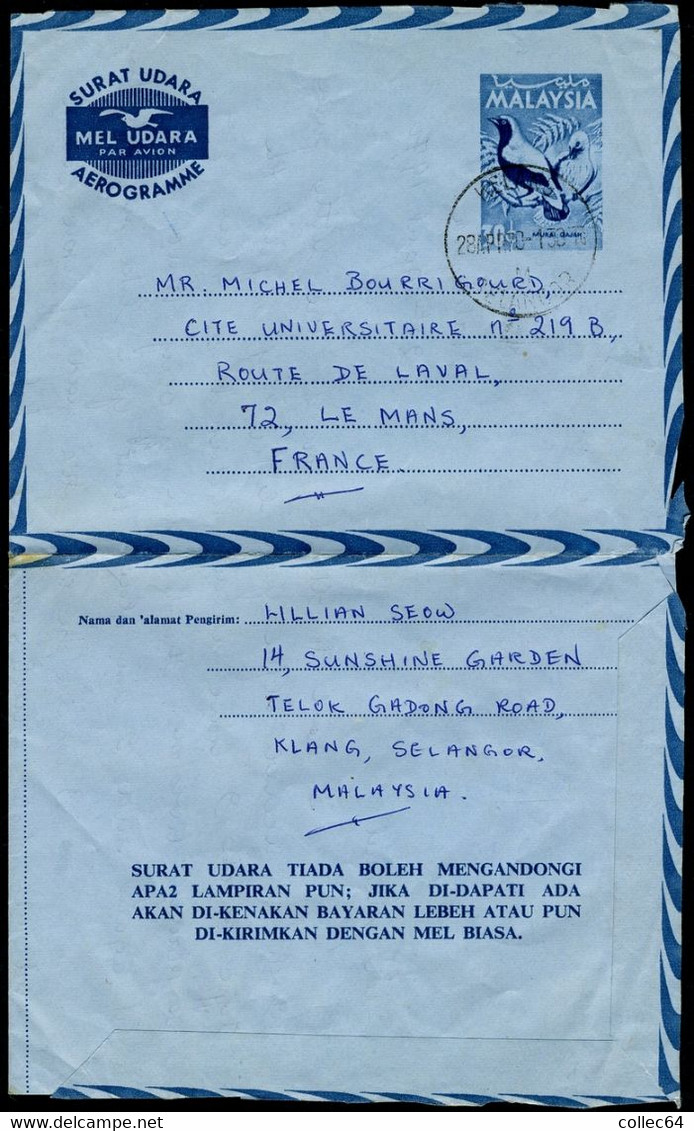 SURAT UDARA
MEL UDARA
PAR AVION
AEROGRAMME
مليسيا
MALAYSIA
28APR
MR. MICHEL BOURRIGOURD,
CITE UNIVERSITAIRE nº 219 B,
ROUTE DE LAVAL,
72, LE MANS,
FRANCE.
Nama dan 'alamat Pengirim: LILLIAN SEOW
14, SUNSHINE GARDEN
TELOK GADONG ROAD,
KLANG, SELANGOR,
MALAYSIA.
SURAT UDARA TIADA BOLEH MENGANDONGI
APA2 LAMPIRAN PUN; JIKA DI-DAPATI ADA
AKAN DI-KENAKAN BAYARAN LEBEH ATAU PUN
DI-KIRIMKAN DENGAN MEL BIASA.
collec64